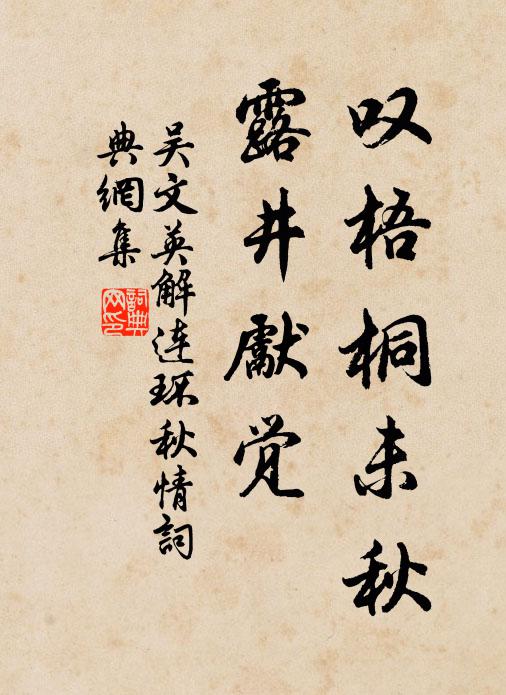 叹梧桐未秋
露井獻觉
吴文英解连环秋情詞
典網集
詞典
网印